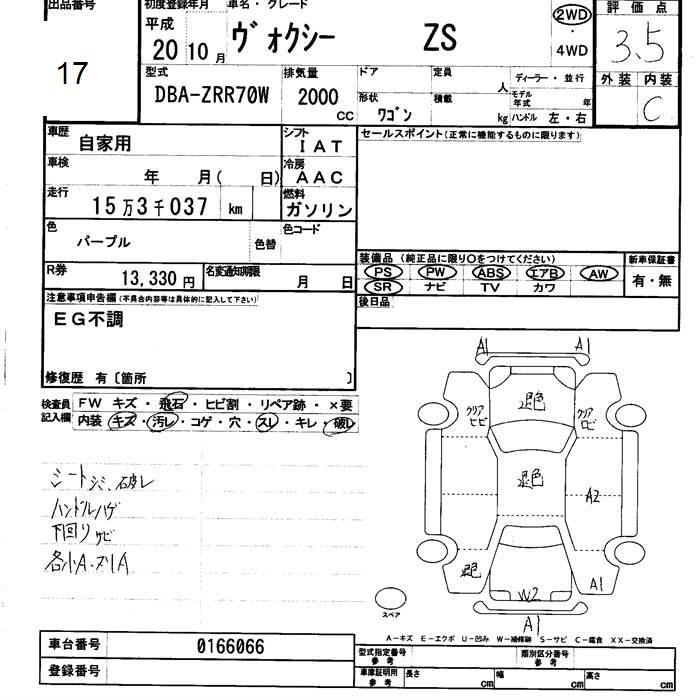 出品番号
17
初度登録年月
平成
20 10月
車名・グレード
ヴォクシー ZS
2WD
・
4WD
評価点
3.5
外装 内装
C
型式
DBA-ZRR70W
排気量
2000
CC
ドア
定員
人
形状
ワゴン
積載
kg
ディーラー・並行
モデル年式 年
ハンドル 左・右
車歴
自家用
シフト
IAT
車検
年 月( 日)
冷房
AAC
走行
15万3千037 km
燃料
ガソリン
色
パープル
色替
色コード
R券
13,330円
名変通知期限
月 日
セールスポイント(正常に機能するものに限ります)
装備品(純正品に限り○をつけてください)
PS PW ABS エアB AW
SR ナビ TV カワ
新車保証書
有・無
後日品
注意事項申告欄(不具合内容等は具体的に記入して下さい)
EG不調
修復歴 有〔箇所 〕
検査員記入欄
FW キズ・飛石・ヒビ割・リペア跡・×要
内装 キズ・汚レ・コゲ・穴・スレ・キレ・破レ
シートシミ、破レ
ハンドルハゲ
下回りサビ
各小A・スリA
A1 A1
退色
クリアヒビ
退色
A2
退色
A1
W2
A1
スペア
A-キズ E-エクボ U-凹み W-補修跡 S-サビ C-腐食 XX-交換済
車台番号 0166066
登録番号
型式指定番号 参考
類別区分番号 参考
車庫証明用 参考
長さ cm
幅 cm
高さ cm